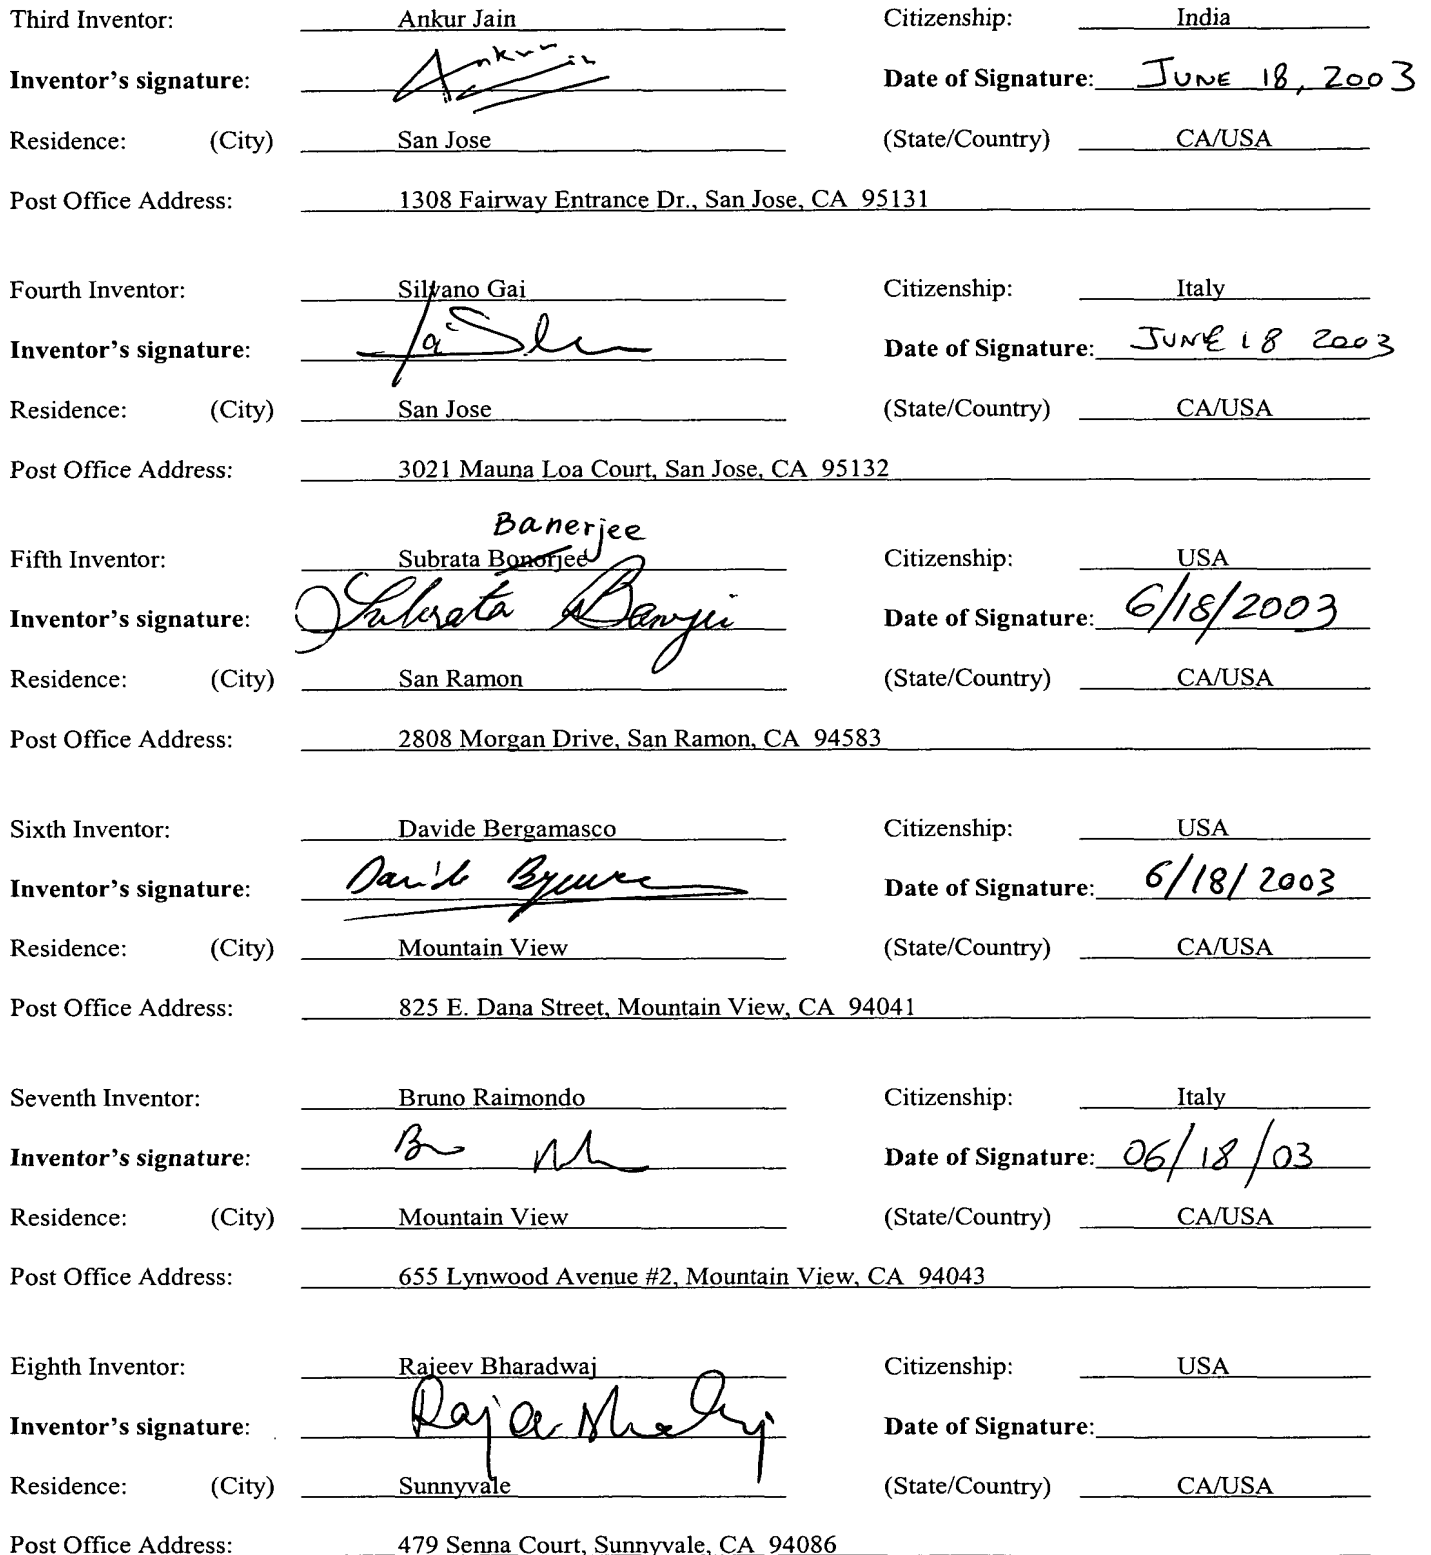 Third Inventor: Ankur Jain Citizenship: India
Inventor's signature: Ankur Jain Date of Signature: JUNE 18, 2003
Residence: (City) San Jose (State/Country) CA/USA
Post Office Address: 1308 Fairway Entrance Dr., San Jose, CA 95131
Fourth Inventor: Silvano Gai Citizenship: Italy
Inventor's signature: Date of Signature: JUNE 18 2003
Residence: (City) San Jose (State/Country) CA/USA
Post Office Address: 3021 Mauna Loa Court, San Jose, CA 95132
Banerjee
Fifth Inventor: Subrata Bonorjee Citizenship: USA
Inventor's signature: Subrata Banerjee Date of Signature: 6/18/2003
Residence: (City) San Ramon (State/Country) CA/USA
Post Office Address: 2808 Morgan Drive, San Ramon, CA 94583
Sixth Inventor: Davide Bergamasco Citizenship: USA
Inventor's signature: Davide Date of Signature: 6/18/2003
Residence: (City) Mountain View (State/Country) CA/USA
Post Office Address: 825 E. Dana Street, Mountain View, CA 94041
Seventh Inventor: Bruno Raimondo Citizenship: Italy
Inventor's signature: Date of Signature: 06/18/03
Residence: (City) Mountain View (State/Country) CA/USA
Post Office Address: 655 Lynwood Avenue #2, Mountain View, CA 94043
Eighth Inventor: Rajeev Bharadwaj Citizenship: USA
Inventor's signature: Date of Signature:
Residence: (City) Sunnyvale (State/Country) CA/USA
Post Office Address: 479 Senna Court, Sunnyvale, CA 94086